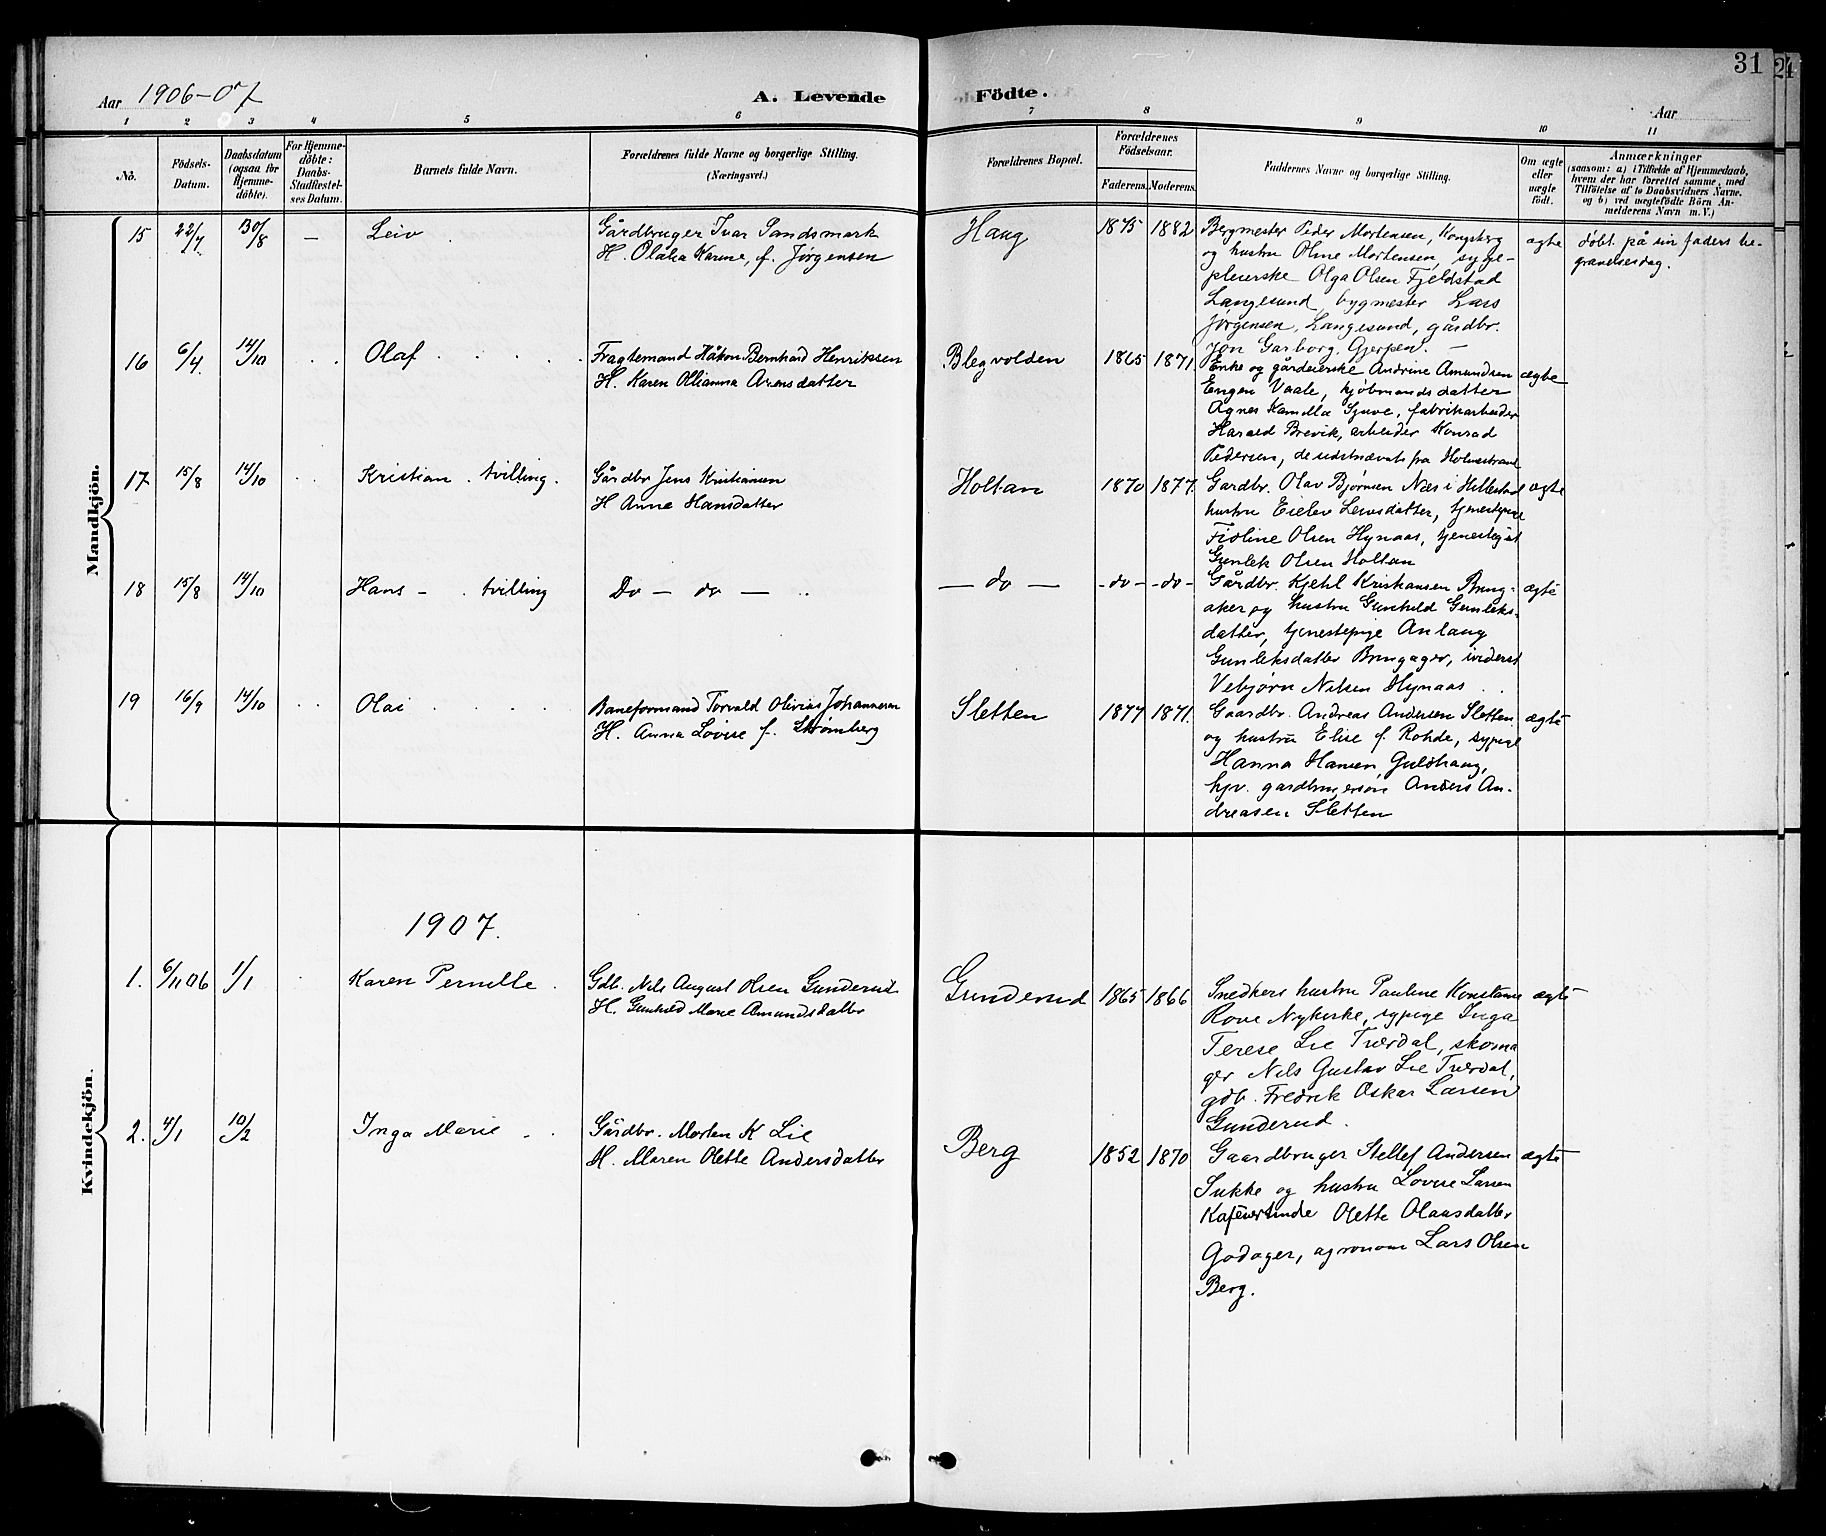 31
Aar 1906-07
A. Levende Födte.
Aar
1 2 3 4 5 6 7 8 9 10 11
No.
Födsels-Datum.
Daabsdatum (ogsaa for Hjemmedöbte).
For Hjemmedöbte: Daabs-Stadfæstelses Datum.
Barnets fulde Navn.
Forældrenes fulde Navne og borgerlige Stilling. (Næringsvei.)
Forældrenes Bopæl.
Forældrenes Födselsaar.
Faderens. Moderens.
Faddernes Navne og borgerlige Stilling.
Om ægte eller uægte födt.
Anmærkninger
(saasom: a) i Tilfælde af Hjemmedaab, hvem der har forrettet samme, med Tilföielse af to Daabsvidners Navne, og b) ved uægtefödte Börn Anmelderens Navn m. V.)
Mandkjön.
15 22/7 30/8 — Leiv
Gårdbruger Ivar Sandsmark
H. Olaka Karine, f. Jørgensen
Haug 1875 1882
Bergmester Peder Mortensen, Kongsberg
og hustru Oline Mortensen, syge-
pleierske Olga Olsen Fjeldstad
Langesund, bygmester Lars
Jørgensen, Langesund, gårdbr.
Jon Garborg, Gjerpen. —
ægte
døbt på sin faders be-
gravelsesdag.
16 6/4 14/10 Olaf
Fragtemand Håkon Bernhard Henriksen
H. Karen Ollianna Arensdatter
Blegvolden 1865 1871
Enke og gårdeierske Andrine Amundsen
Engen Vaale, kjøbmandsdatter
Agnes Kamilla Syuve, fabrikarbeider
Harald Brevik, arbeider Konrad
Pedersen, de udstrævnte fra Holmestrand
ægte
17 15/8 14/10 Kristian tvilling.
Gårdbr Jens Kristiansen
H Anne Hansdatter
Holtan 1870 1877.
Gardbr. Olav Bjørnsen Næs i Hillestad
hustru Eielev Leivsdatter, tjenestepige
Fioline Olsen Hynaas, tjenestegut
Gunlek Olsen Holtan
ægte
18 15/8 14/10 Hans — tvilling
Do — do —
— do — - do - - do -
Gårdbr. Kjetil Kristiansen Brng-
aker og hustru Gunhild Gunleks-
datter, tjenestepige Anlaug
Gunleksdatter Brngager, inderst
Vebjørn Nilsen Hynaas
ægte
19 16/9 14/10 Olai
Baneformand Torvald Olivius Johannesen
H. Anna Lovise f. Strømberg
Sletten 1877 1871.
Gaardbr. Andreas Andersen Sletten
og hustru Elise f. Rohde, sypige
Hanna Hansen, Guldhaug,
hjv. gardbrugersøn Anders An-
dreasen Sletten
ægte
Kvindekjön.
1907.
1. 6/11 06 1/1 Karen Pernille
Gdb. Nils August Olsen Gunderud
H. Gunhild Marie Amundsdatter
Gunderud 1865 1866
Snedkers hustru Pauline Konstanse
Rove Nykirke, sypige Inga
Terese Lie Tverdal, skoma
ger Nils Gustav Lie Tverdal,
gdb. Fredrik Oskar Larsen
Gunderud.
ægte
2. 4/1 10/2 Inga Marie
Gårdbr. Morten K Lie
H. Maren Olette Andersdatter
Berg 1852 1870
Gaardbruger Stellef Andersen
Sukke og hustru Lovise Larsen
Kafevertinde Olette Olausdatter
Godager, agronom Lars Olsen
Berg.
ægte